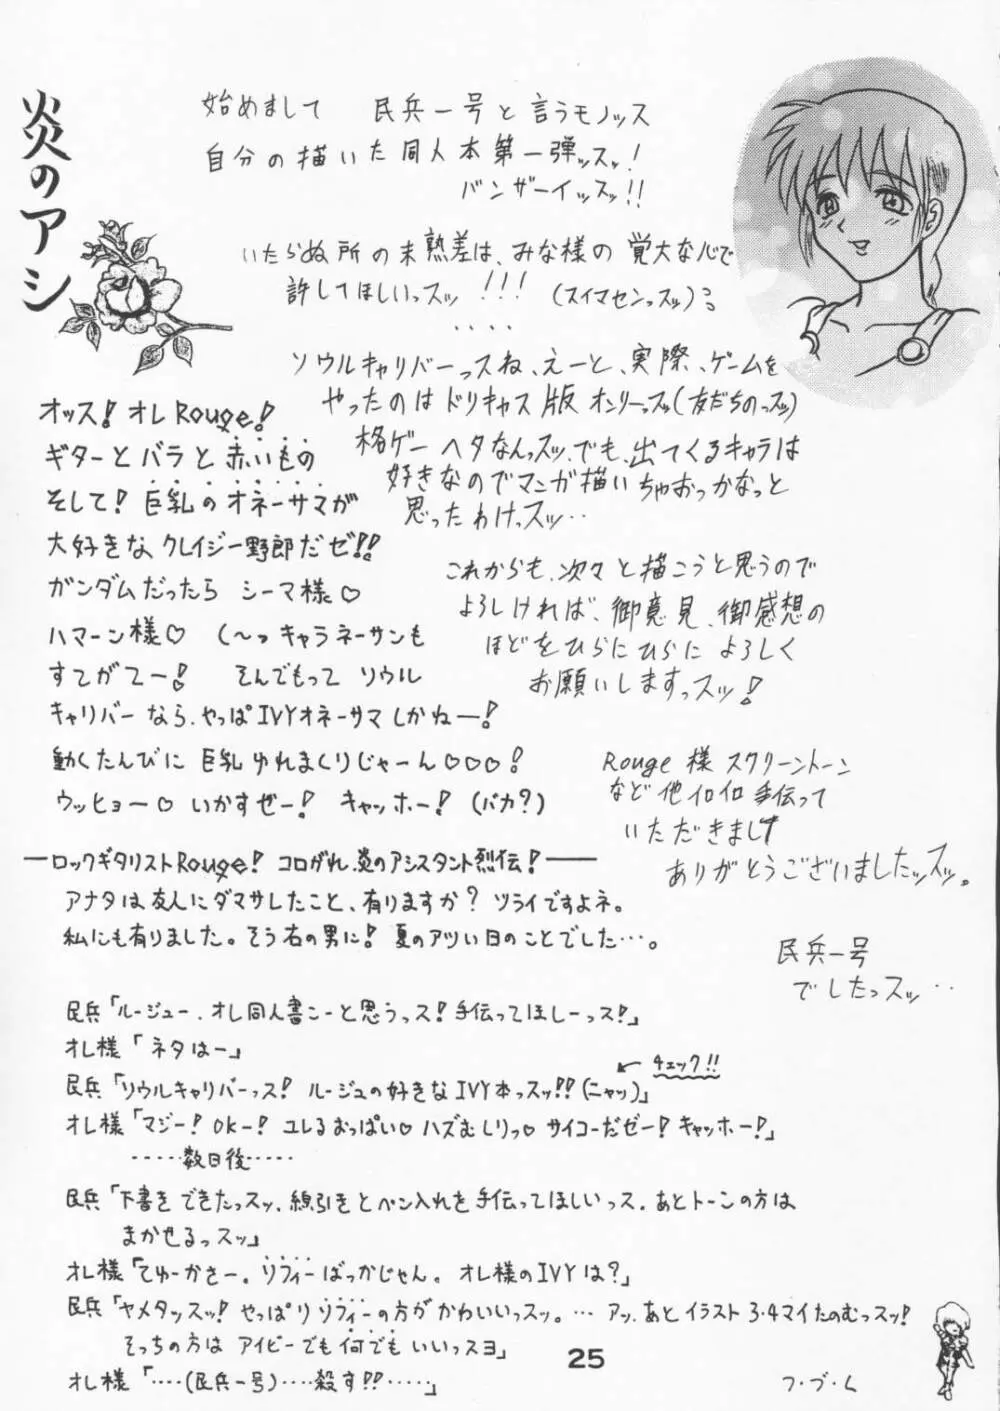 炎のアシ
始めまして 民兵一号と言うモノッス
自分の描いた同人本第一弾ッスッ!
バンザーイッスッ!!
いたらぬ所の未熟差は、みな様の 覚大な心で
許してほしいっスッ!!! (スイマセンっスッ)
・・・・
ソウルキャリバーっスね、えーと、実際、ゲームを
やったのは ドリキャス版 オンリーっスッ(友だちのっスッ)
格ゲー ヘタなんっスッ、でも、出てくるキャラは
好きなのでマンガ描いちゃおっかなっと
思ったわけっスッ・・
これからも、次々と描こうと思うので
よろしければ、御意見、御感想の
ほどをひらにひらに よろしく
お願いしますっスッ!
Rouge様 スクリーントーン
など他イロイロ手伝って
いただきまして
ありがとうございましたッスッ。
民兵一号
でしたっスッ・・
オッス! オレRouge!
ギターとバラと赤いもの
そして! 巨乳のオネーサマが
大好きな クレイジー野郎だゼ!!
ガンダムだったら シーマ様♡
ハマーン様♡ (〜っキャラネーサンも
すてがてー! そんでもって ソウル
キャリバーなら、やっぱIVYオネーサマしかねー!
動くたんびに 巨乳ゆれまくりじゃーん♡♡♡!
ウッヒョー♡ いかすぜー! キャッホー! (バカ?)
―ロックギタリストRouge! コロがれ、炎のアシスタント烈伝!―
アナタは友人にダマサしたこと、有りますか? ツライですよネ。
私にも有りました。そう右の男に! 夏のアツい日のことでした・・・。
民兵「ルージュー、オレ同人書こーと思うっス! 手伝ってほしーっス!」
オレ様「ネタはー」
チェック!!
民兵「ソウルキャリバーっス! ルージュの好きなIVY本っスッ!!(ニャッ)」
オレ様「マジー! OKー! ユレるおっぱい♡ ハズむしりっ♡ サイコーだゼー! キャッホー!」
・・・・・数日後・・・・・
民兵「下書きできたっスッ、線引きとペン入れを手伝ってほしいっス、あとトーンの方は
まかせるっスッ」
オレ様「てゆーかさー。ソフィーばっかじゃん。オレ様のIVYは?」
民兵「ヤメタッスッ! やっぱりソフィーの方がかわいいっスッ。・・・ アッ、あとイラスト3・4マイたのむっスッ!
そっちの方は アイビーでも何でもいいっスヨ」
オレ様「・・・・(民兵一号)・・・・殺す!!・・・・・」
25
フ・ブ・ム